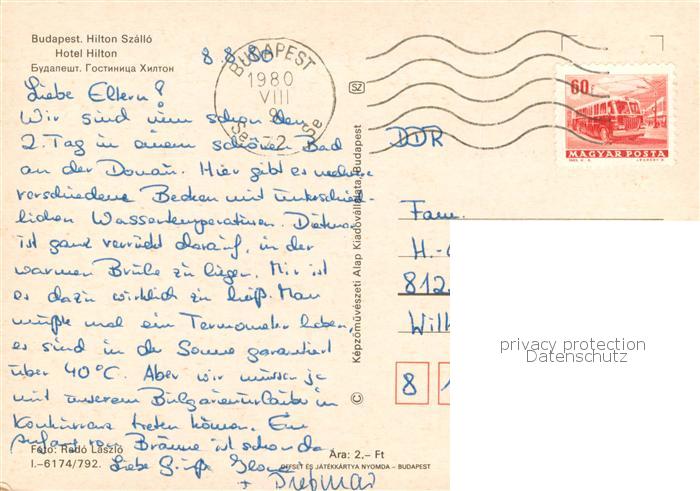 Budapest. Hilton Szálló
Hotel Hilton
Будапешт. Гостиница Хилтон
8.8.80
BUDAPEST
1980
VIII
SZ
60f
MAGYAR POSTA
Liebe Eltern!
Wir sind nun schon den
2. Tag in einem schönen Bad
an der Donau. Hier gibt es mehrere
verschiedene Becken mit unterschied-
lichen Wassertemperaturen. Dietmar
ist ganz verrückt darauf, in der
warmen Brühe zu liegen. Mir ist
es dazu wirklich zu heiß. Man
müßte mal ein Termometer haben,
es sind in der Sonne garantiert
über 40°C. Aber wir müssen ja
mit unserem Bulgarienurlaub in
Konkurrenz treten können. Ein
Anfang von Bräune ist schon da
Liebe Grüße
+ Dietmar
DDR
Fam.
H.-
812
Wilh
8 1
Képzőművészeti Alap Kiadóvállalata, Budapest
©
Fotó: Radó László
I.-6174/792.
Ára: 2,– Ft
OFFSET ÉS JÁTÉKKÁRTYA NYOMDA – BUDAPEST
privacy protection
Datenschutz